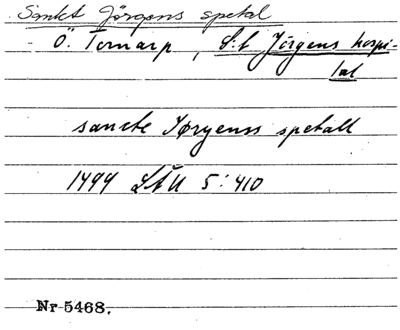 Sankt Jörgens spetal
Ö. Tornarp, S:t Jörgens hospi-
tal
sancte Jørgenss spetall
1499 LÅU 5:410
Nr 5468.